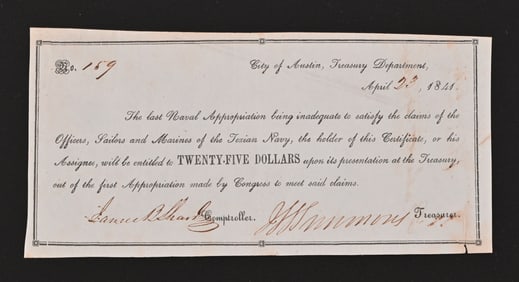 No. 159 City of Austin, Treasury Department,
April 23, 1841.
The last Naval Appropriation being inadequate to satisfy the claims of the
Officers, Sailors and Marines of the Texian Navy, the holder of this Certificate, or his
Assignee, will be entitled to TWENTY-FIVE DOLLARS upon its presentation at the Treasury,
out of the first Appropriation made by Congress to meet said claims.
James B. Shaw Comptroller. Simmons Treasurer.